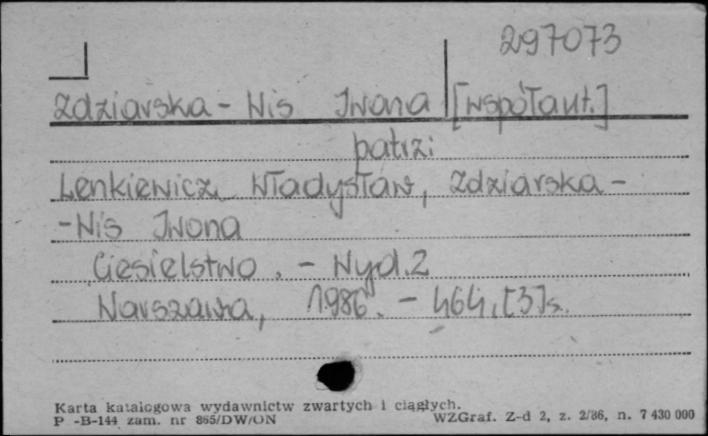 297073
Zdziarska-Wis Iwona [współaut.]
patrzi
Lenkiewicz Władysław, Zdziarska-
-Wis Iwona
Ciesielstwo. - Wyd. 2
Warszawa, 1986. - 464, [3] s.
Karta katalogowa wydawnictw zwartych i ciągłych.
P -B-144 zam. nr 865/DW/ON WZGraf. Z-d 2, z. 2/86, n. 7 430 000